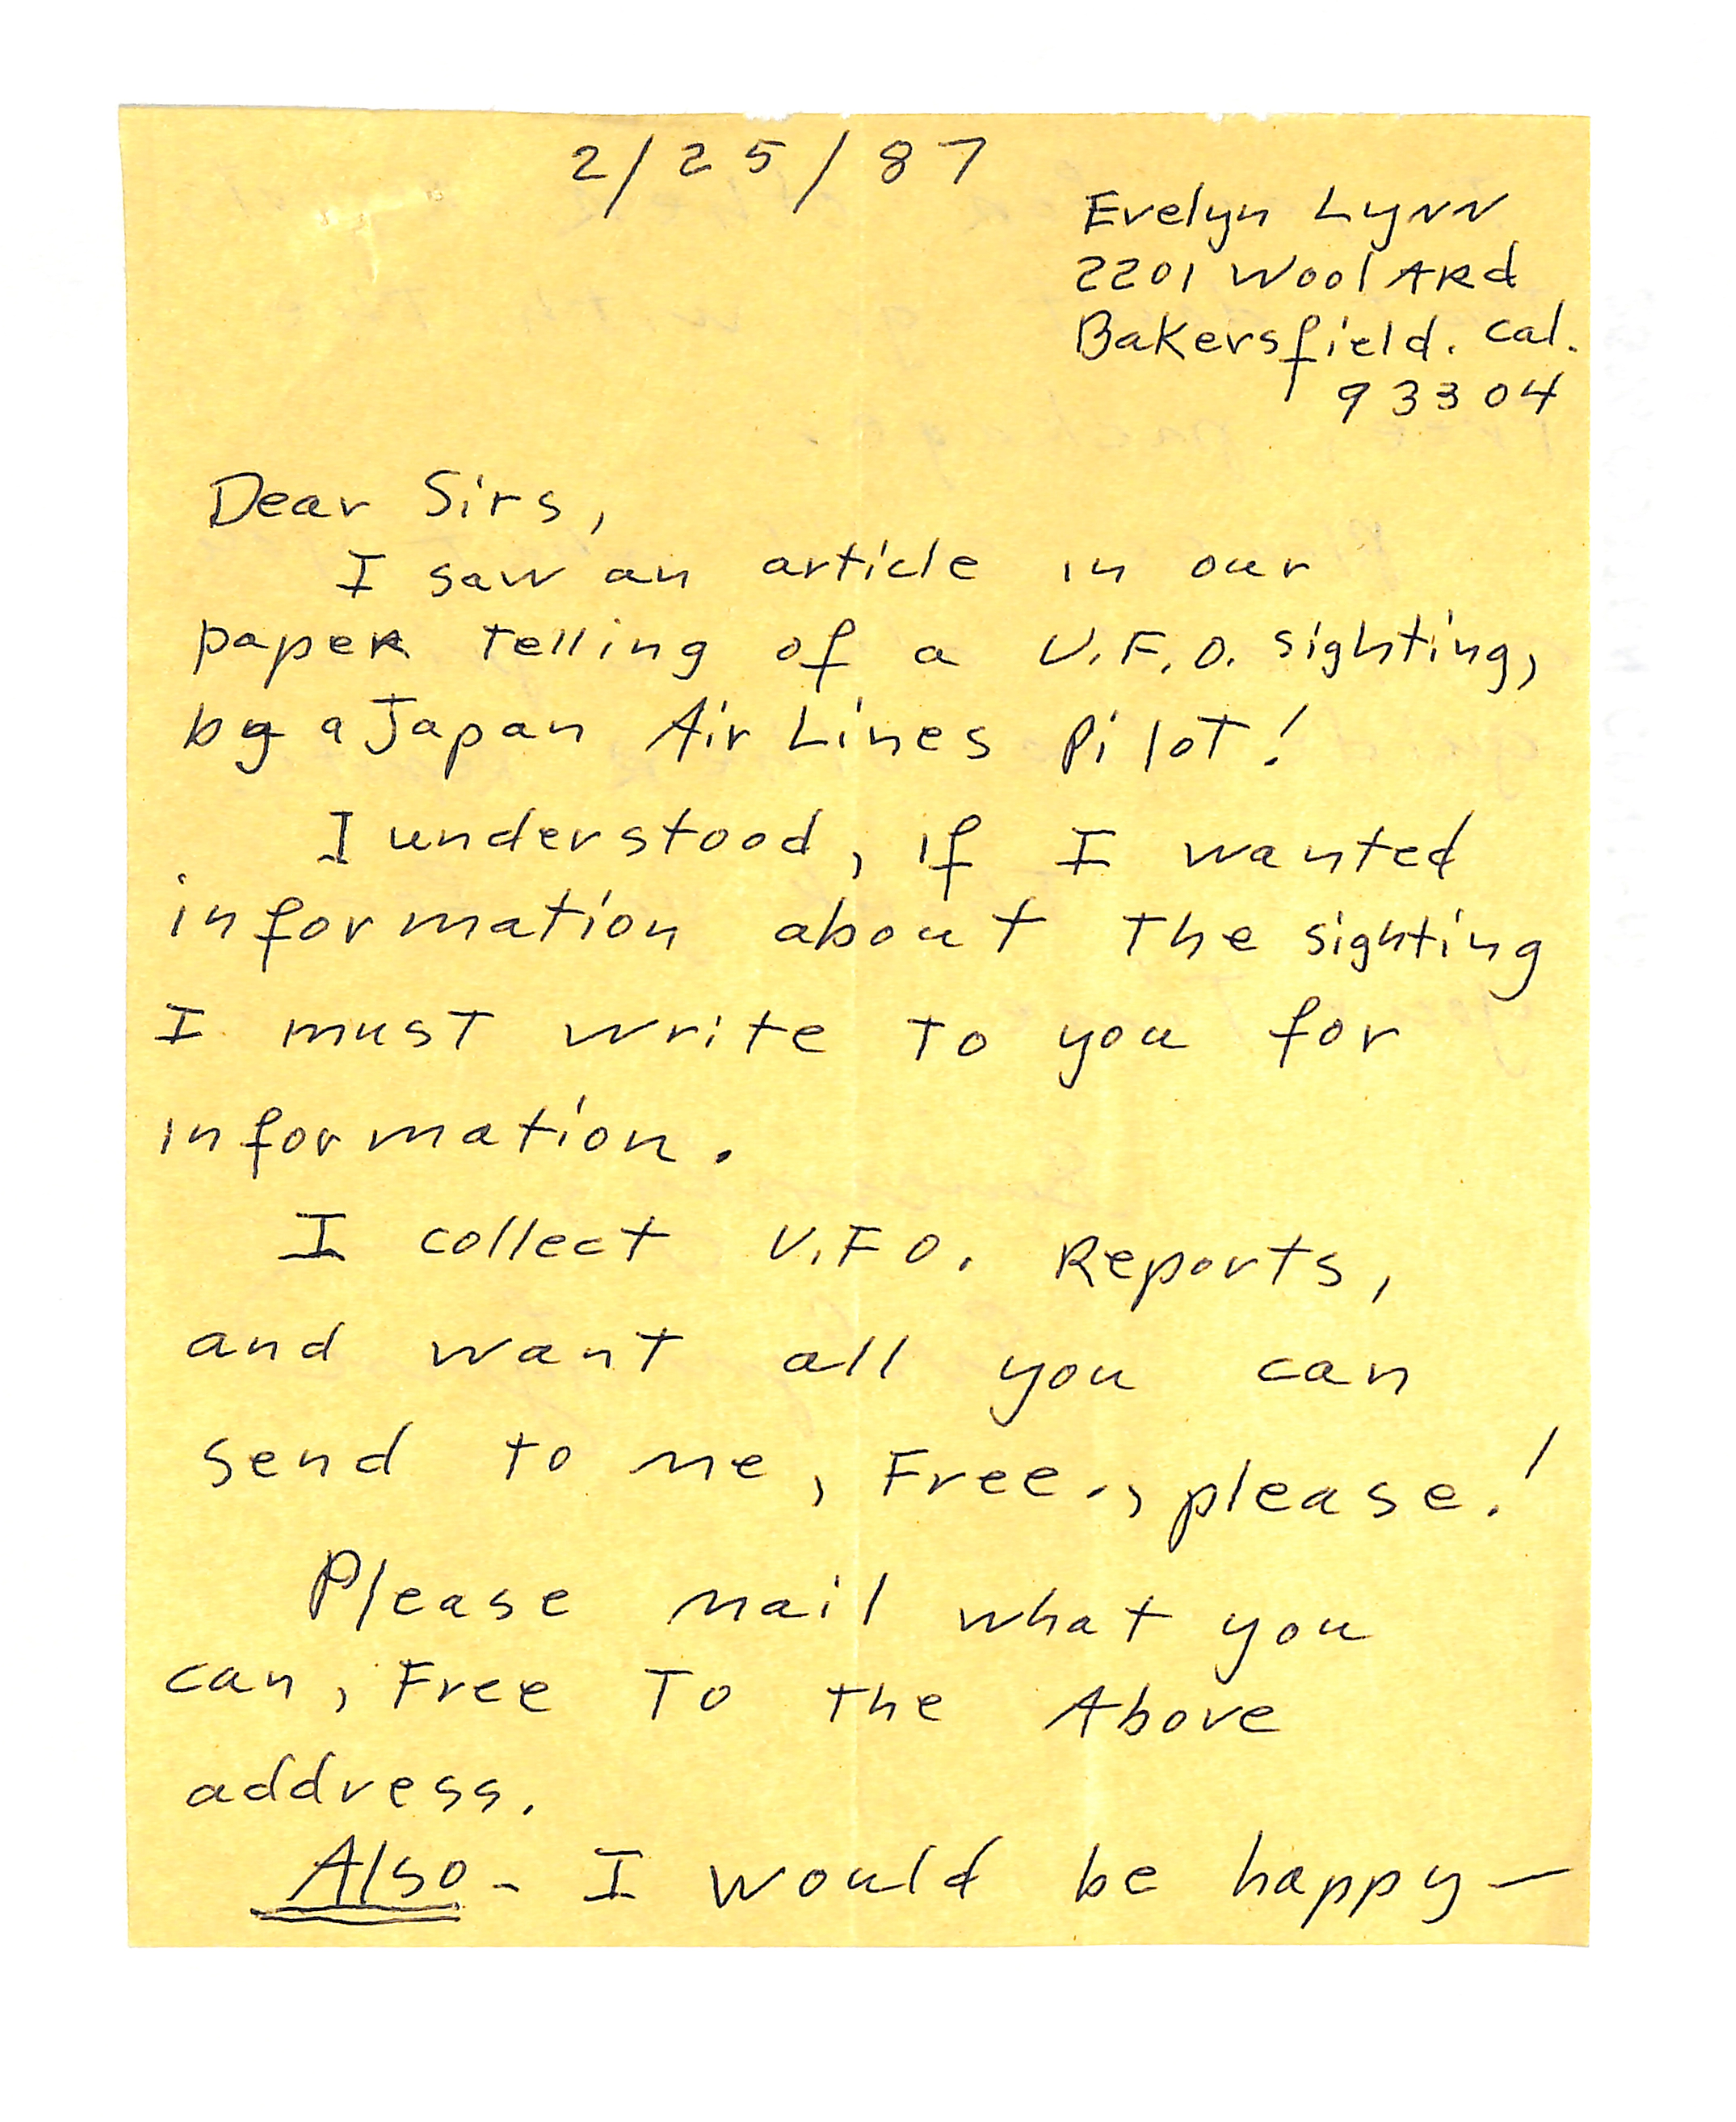 2/25/87
Evelyn Lynn
2201 Woolard
Bakersfield. Cal.
93304
Dear Sirs,
I saw an article in our
paper telling of a U.F.O. sighting,
by a Japan Air Lines Pilot!
I understood, if I wanted
information about the sighting
I must write to you for
information.
I collect U.F.O. Reports,
and want all you can
send to me, Free., please!
Please mail what you
can, Free To the Above
address.
Also - I would be happy —